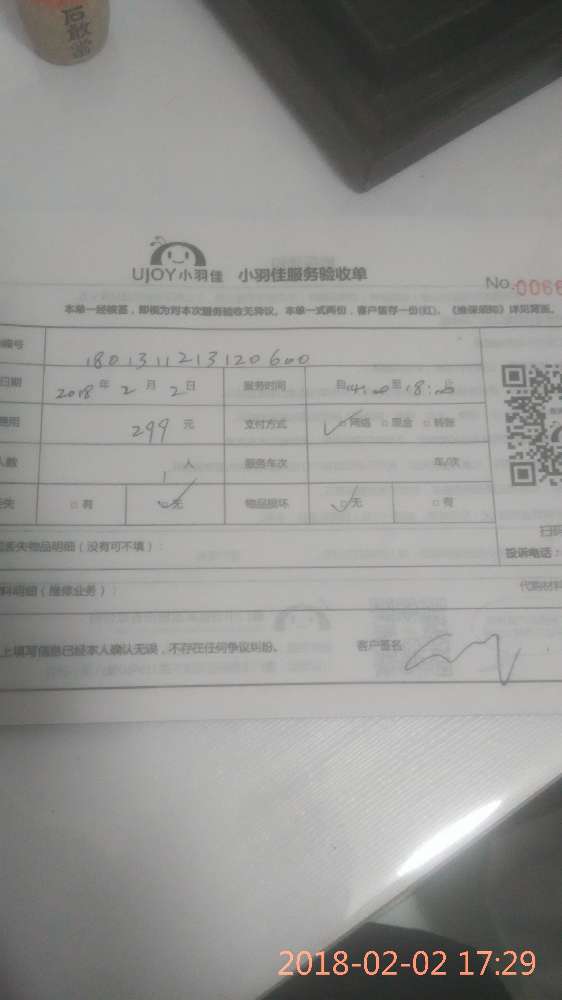 石敢當
UJOY小羽佳 小羽佳服务验收单
No.
本单一经核签，即视为对本次服务验收无异议。本单一式两份，客户留存一份(红)，《维保须知》详见背面。
编号 180131121312060​0
日期 2018年2月2日 服务时间 自14:00至18:00止
费用 299元 支付方式 ☑网络 □现金 □转账
人数 1人 服务车次 车/次
丢失 □有 ☑无 物品损坏 ☑无 □有
扫码
丢失物品明细（没有可不填）： 投诉电话：
料明细（维修业务）： 代购材料
上填写信息已经本人确认无误，不存在任何争议纠纷。 客户签名
2018-02-02 17:29